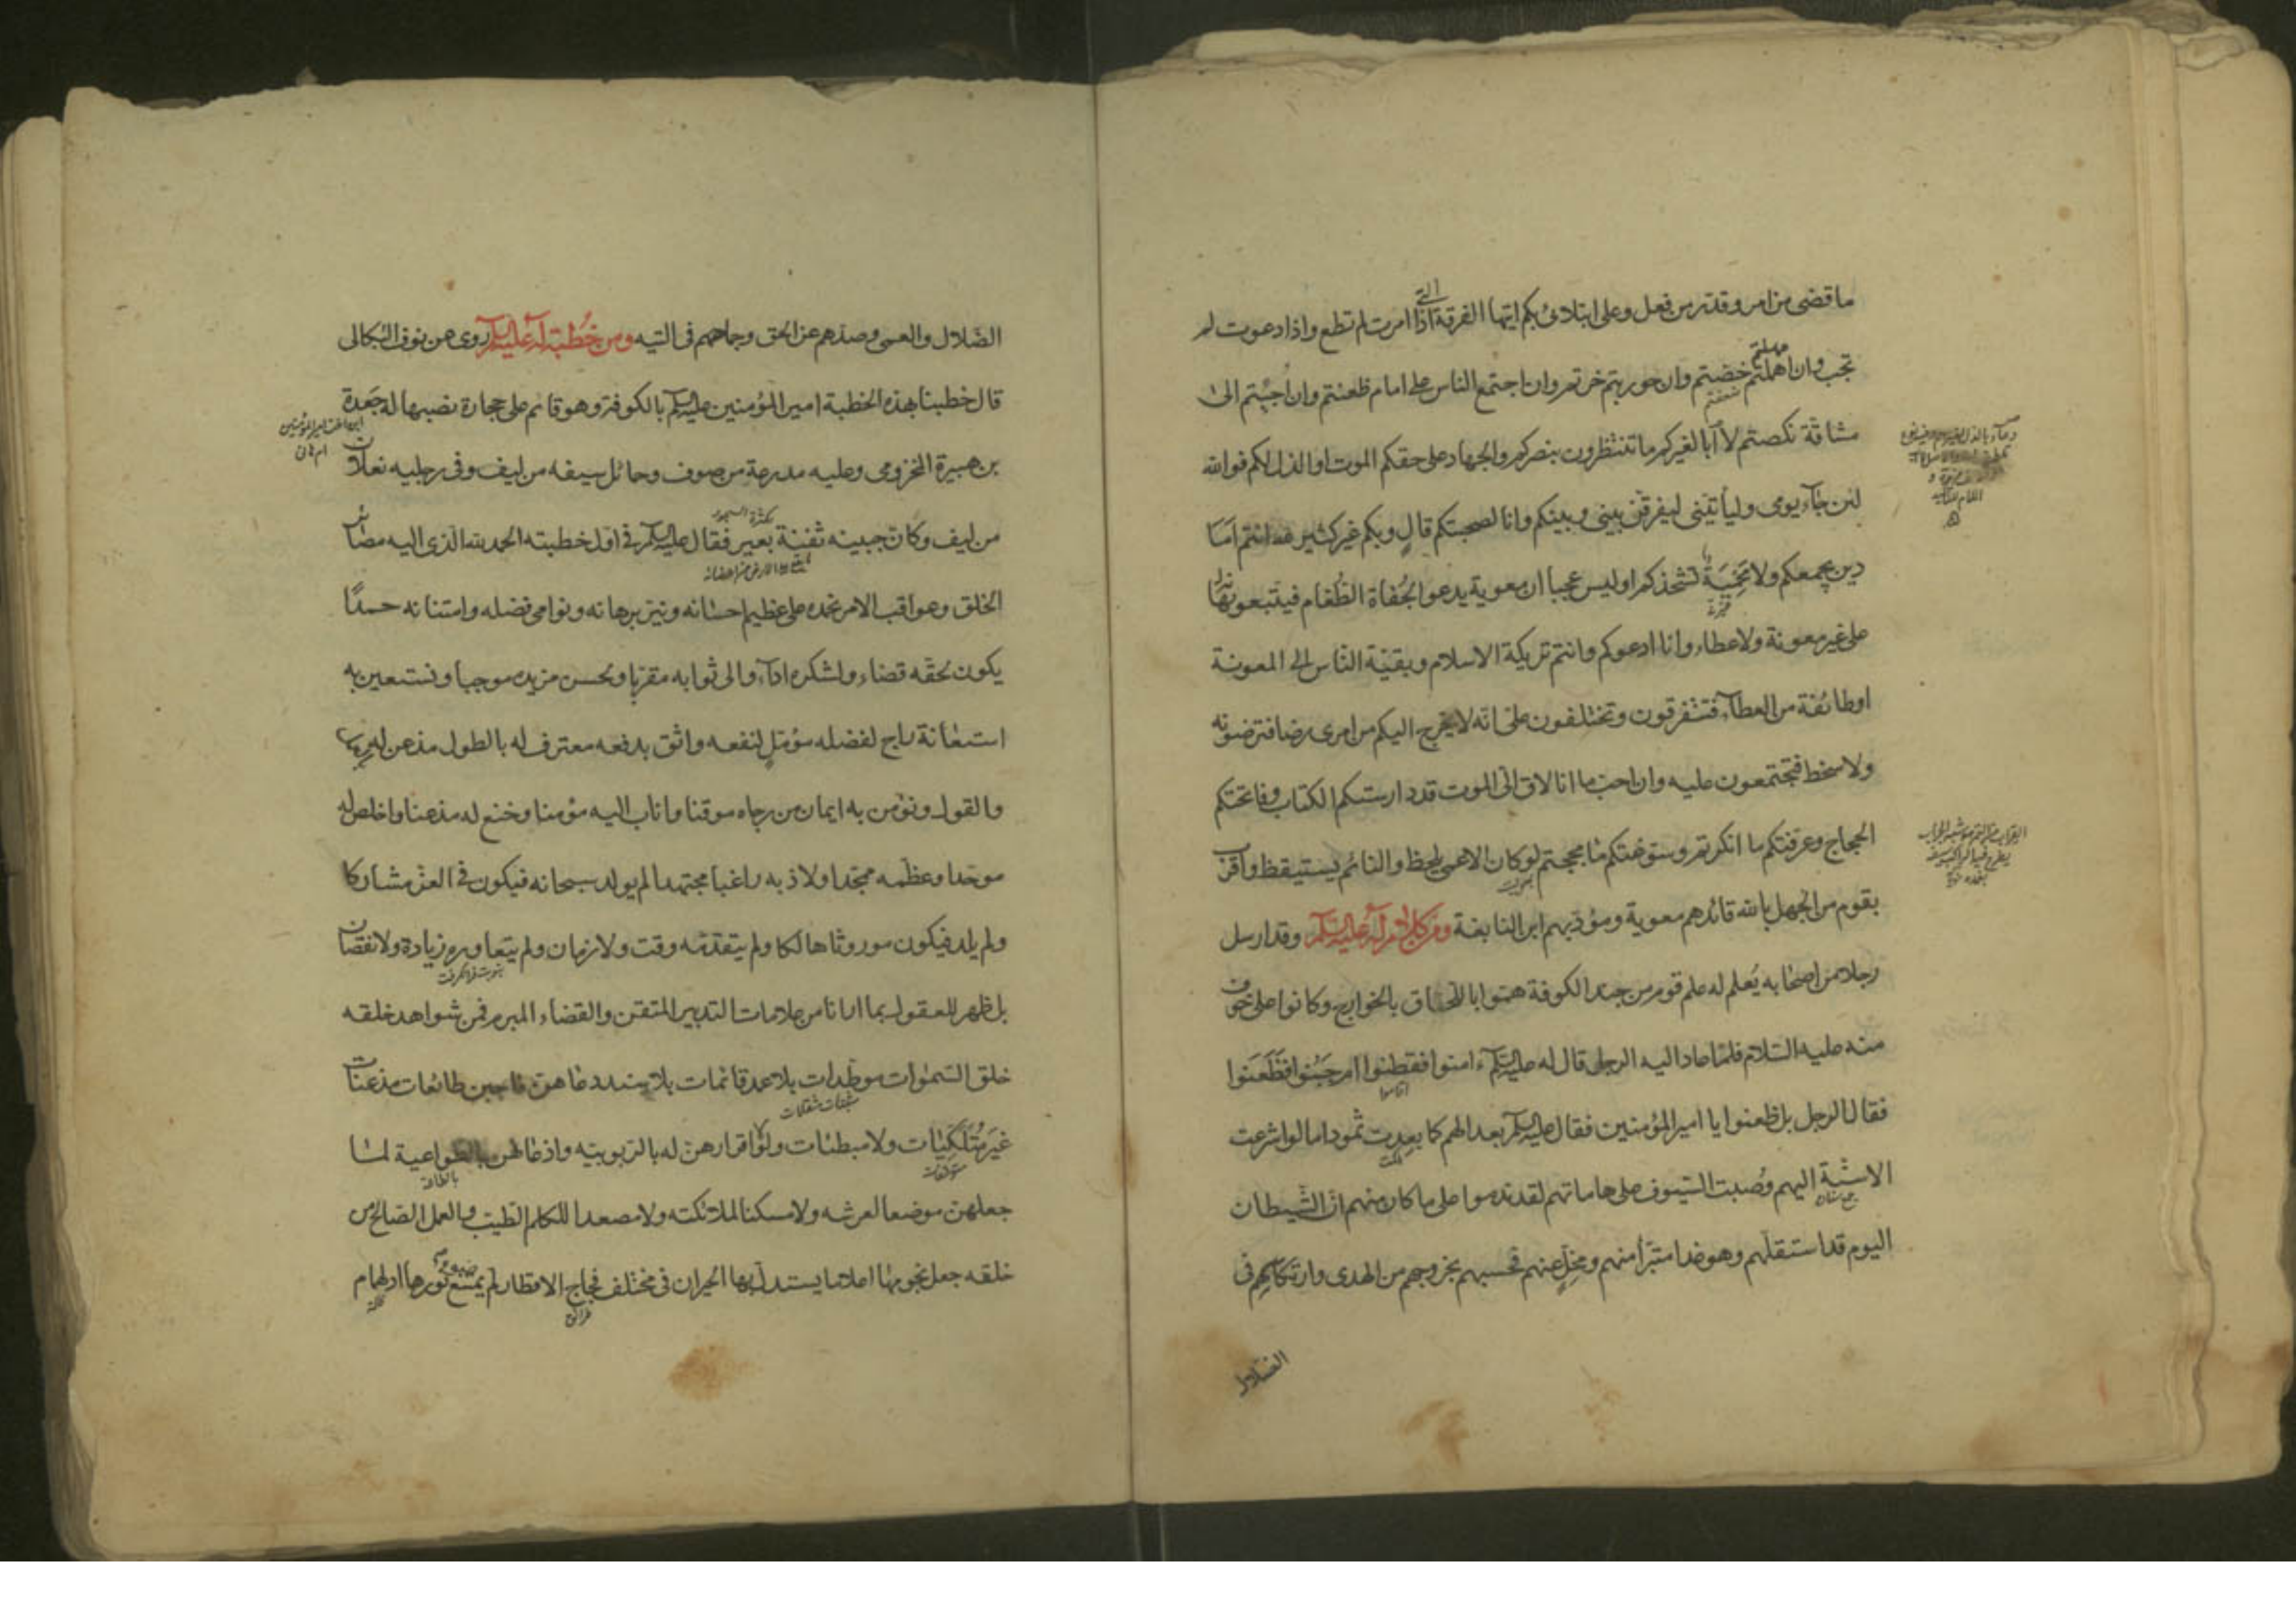 ما قضى من امر وقدر من فعل وعلى ابتلائى بكم ايتها الفرقة التى اذا امرت لم تطع واذا دعوت لم
تجب وان اهملتم خضتم وان حوربتم خرتم وان اجتمع الناس على امام طعنتم وان اجئتم الى
مشاقة نكصتم لا أبا لغيركم ما تنتظرون بنصركم والجهاد على حقكم الموت او الذل لكم فوالله
لئن جاء يومى وليأتينى ليفرقن بينى وبينكم وانا لصحبتكم قالٍ وبكم غير كثير لله انتم اما
دين يجمعكم ولا محمية تشحذكم او ليس عجبا ان معوية يدعو الجفاة الطغام فيتبعونه
على غير معونة ولا عطاء وانا ادعوكم وانتم تريكة الاسلام وبقية الناس الى المعونة
او طائفة من العطاء فتتفرقون وتختلفون على انه لا يخرج اليكم من امرى رضا فترضونه
ولا سخط فتجتمعون عليه وان احب ما انا لاق الى الموت قد دارستكم الكتاب وفاتحتكم
الحجاج وعرفتكم ما انكرتم وسوغتكم ما مججتم لو كان الاعمى يلحظ والنائم يستيقظ واقرب
بقوم من الجهل بالله قائدهم معوية ومؤدبهم ابن النابغة ومن كلام له عليه السلام وقد ارسل
رجلا من اصحابه يعلم له علم قوم من جند الكوفة هموا باللحاق بالخوارج وكانوا على خوف
منه عليه السلام فلما عاد اليه الرجل قال له عليه السلام ءامنوا فقطنوا ام جبنوا فظعنوا
فقال الرجل بل ظعنوا يا امير المؤمنين فقال عليه السلام بعدا لهم كما بعدت ثمود اما لو اشرعت
الاسنة اليهم وصبت السيوف على هاماتهم لقد ندموا على ما كان منهم ان الشيطان
اليوم قد استقلهم وهو غدا متبرأ منهم ومخلٍ عنهم فحسبهم بخروجهم من الهدى وارتكاسهم فى
الضلال
الضلال والعمى وصدهم عن الحق وجماحهم فى التيه ومن خطبة له عليه السلام روى عن نوف البكالى
قال خطبنا بهذه الخطبة امير المؤمنين عليه السلام بالكوفة وهو قائم على حجارة نصبها له جعدة
ابن اخت امير المؤمنين
ام هانى
بن هبيرة المخزومى وعليه مدرعة من صوف وحمائل سيفه من ليف وفى رجليه نعلان
من ليف وكان جبينه ثفنة بعير فقال عليه السلام فى اول خطبته الحمد لله الذى اليه مصائر
الخلق وعواقب الامر نحمده على عظيم احسانه ونير برهانه ونوامى فضله وامتنانه حمدًا
يكون لحقه قضاء ولشكره اداء والى ثوابه مقربا ولحسن مزيده موجبا ونستعين به
استعانة راج لفضله مؤملٍ لنفعه واثق بدفعه معترف له بالطول مذعن له بالعمل
والقول ونؤمن به ايمان من رجاه موقنا واناب اليه مؤمنا وخنع له مذعنا واخلص له
موحدا وعظمه ممجدا ولاذ به راغبا مجتهدا لم يولد سبحانه فيكون فى العز مشاركا
ولم يلد فيكون موروثا هالكا ولم يتقدمه وقت ولا زمان ولم يتعاوره زيادة ولا نقصان
بل ظهر للعقول بما ارانا من علامات التدبير المتقن والقضاء المبرم فمن شواهد خلقه
خلق السموات موطدات بلا عمد قائمات بلا سند دعاهن فاجبن طائعات مذعنات
غير متلكئات ولا مبطئات ولولا اقرارهن له بالربوبية واذعانهن بالطواعية لما
جعلهن موضعا لعرشه ولا مسكنا لملائكته ولا مصعدا للكلم الطيب والعمل الصالح من
خلقه جعل نجومها اعلاما يستدل بها الحيران فى مختلف فجاج الاقطار لم يمنع ضوء نورها ادلهمام